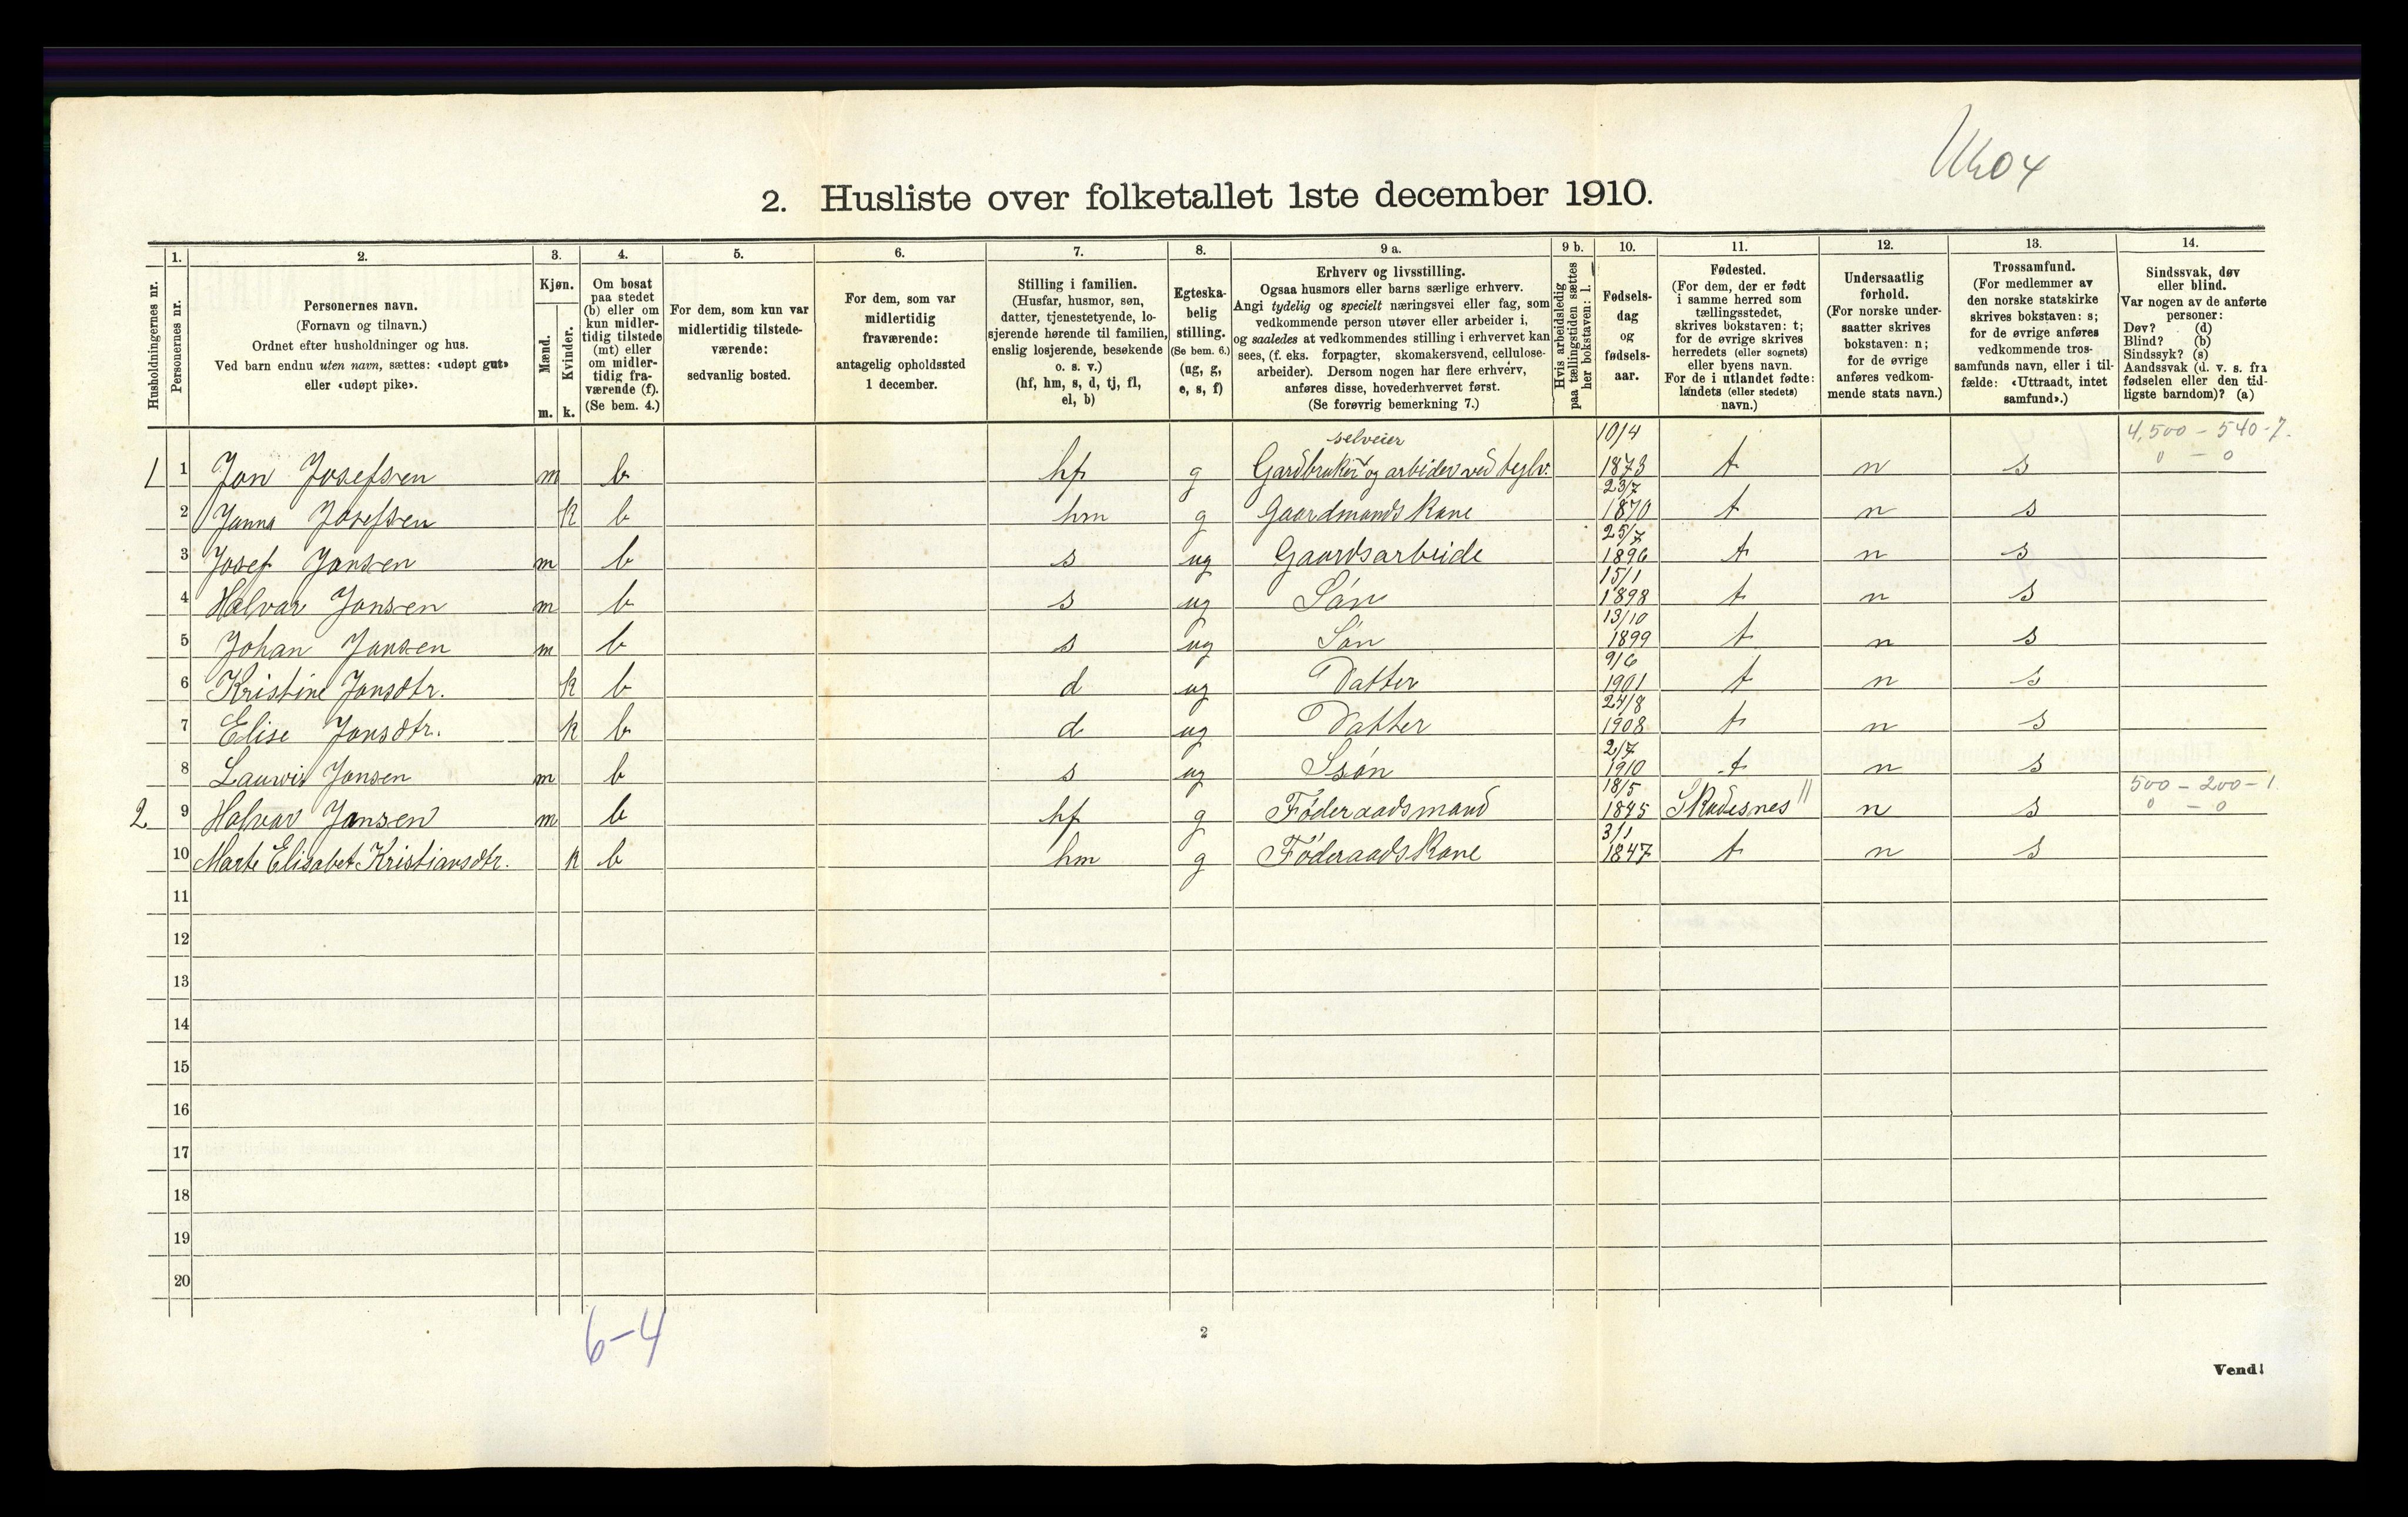 2. Husliste over folketallet 1ste december 1910.
Husholdningernes nr.
1.
Personernes nr.
2.
Personernes navn.
(Fornavn og tilnavn.)
Ordnet efter husholdninger og hus.
Ved barn endnu uten navn, sættes: «udøpt gut»
eller «udøpt pike».
3.
Kjøn.
Mænd.
Kvinder.
m. k.
4.
Om bosat
paa stedet
(b) eller om
kun midler-
tidig tilstede
(mt) eller
om midler-
tidig fra-
værende (f).
(Se bem. 4.)
5.
For dem, som kun var
midlertidig tilstede-
værende:
sedvanlig bosted.
6.
For dem, som var
midlertidig
fraværende:
antagelig opholdssted
1 december.
7.
Stilling i familien.
(Husfar, husmor, søn,
datter, tjenestetyende, lo-
sjerende hørende til familien,
enslig losjerende, besøkende
o. s. v.)
(hf, hm, s, d, tj, fl,
el, b)
8.
Egteska-
belig
stilling.
(Se bem. 6.)
(ug, g,
e, s, f)
9 a.
Erhverv og livsstilling.
Ogsaa husmors eller barns særlige erhverv.
Angi tydelig og specielt næringsvei eller fag, som
vedkommende person utøver eller arbeider i,
og saaledes at vedkommendes stilling i erhvervet kan
sees, (f. eks. forpagter, skomakersvend, cellulose-
arbeider). Dersom nogen har flere erhverv,
anføres disse, hovederhvervet først.
(Se forøvrig bemerkning 7.)
9 b.
Hvis arbeidsledig
paa tællingstiden sættes
her bokstaven: l.
10.
Fødsels-
dag
og
fødsels-
aar.
11.
Fødested.
(For dem, der er født
i samme herred som
tællingsstedet,
skrives bokstaven: t;
for de øvrige skrives
herredets (eller sognets)
eller byens navn.
For de i utlandet fødte:
landets (eller stedets)
navn.)
12.
Undersaatlig
forhold.
(For norske under-
saatter skrives
bokstaven: n;
for de øvrige
anføres vedkom-
mende stats navn.)
13.
Trossamfund.
(For medlemmer av
den norske statskirke
skrives bokstaven: s;
for de øvrige anføres
vedkommende tros-
samfunds navn, eller i til-
fælde: «Uttraadt, intet
samfund».)
14.
Sindssvak, døv
eller blind.
Var nogen av de anførte
personer:
Døv? (d)
Blind? (b)
Sindssyk? (s)
Aandssvak (d. v. s. fra
fødselen eller den tid-
ligste barndom)? (a)
selveier 10/4 4,500 - 540-7.
1 1 Jon Josefsen m b hf g Gardbruker og arbider ved teglv. 1873 t n s 0 - 0
23/7
2 Janna Josefsen k b hm g Gaardmands Kone 1870 t n s
25/7
3 Josef Jonsen m b s ug Gaardsarbeide 1896 t n s
15/1
4 Halvar Jonsen m b s ug Søn 1898 t n s
13/10
5 Johan Jonsen m b s ug Søn 1899 t n s
9/6
6 Kristine Jonsdtr. k b d ug Datter 1901 t n s
24/8
7 Elise Jonsdtr. k b d ug Datter 1908 t n s
2/7
8 Lauwis Jonsen m b s ug Søn 1910 t n s
18/5 500 - 200 - 1
2 9 Halvar Jonsen m b hf g Føderaadsmand 1845 Skudesnes n s 0 - 0
3/1
10 Marte Elisabet Kristiansdtr. k b hm g Føderaadskone 1847 t n s
11
12
13
14
15
16
17
18
19
20
6-4
2
Vend!